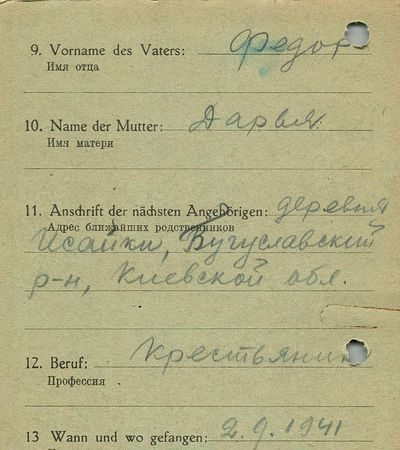 9. Vorname des Vaters: Федор
Имя отца
10. Name der Mutter: Дарья
Имя матери
11. Anschrift der nächsten Angehörigen: деревня
Адрес ближайших родственников
Исайки, Бугуславский
р-н, Киевской обл.
12. Beruf: Крестьянин
Профессия
13 Wann und wo gefangen: 2.9.1941